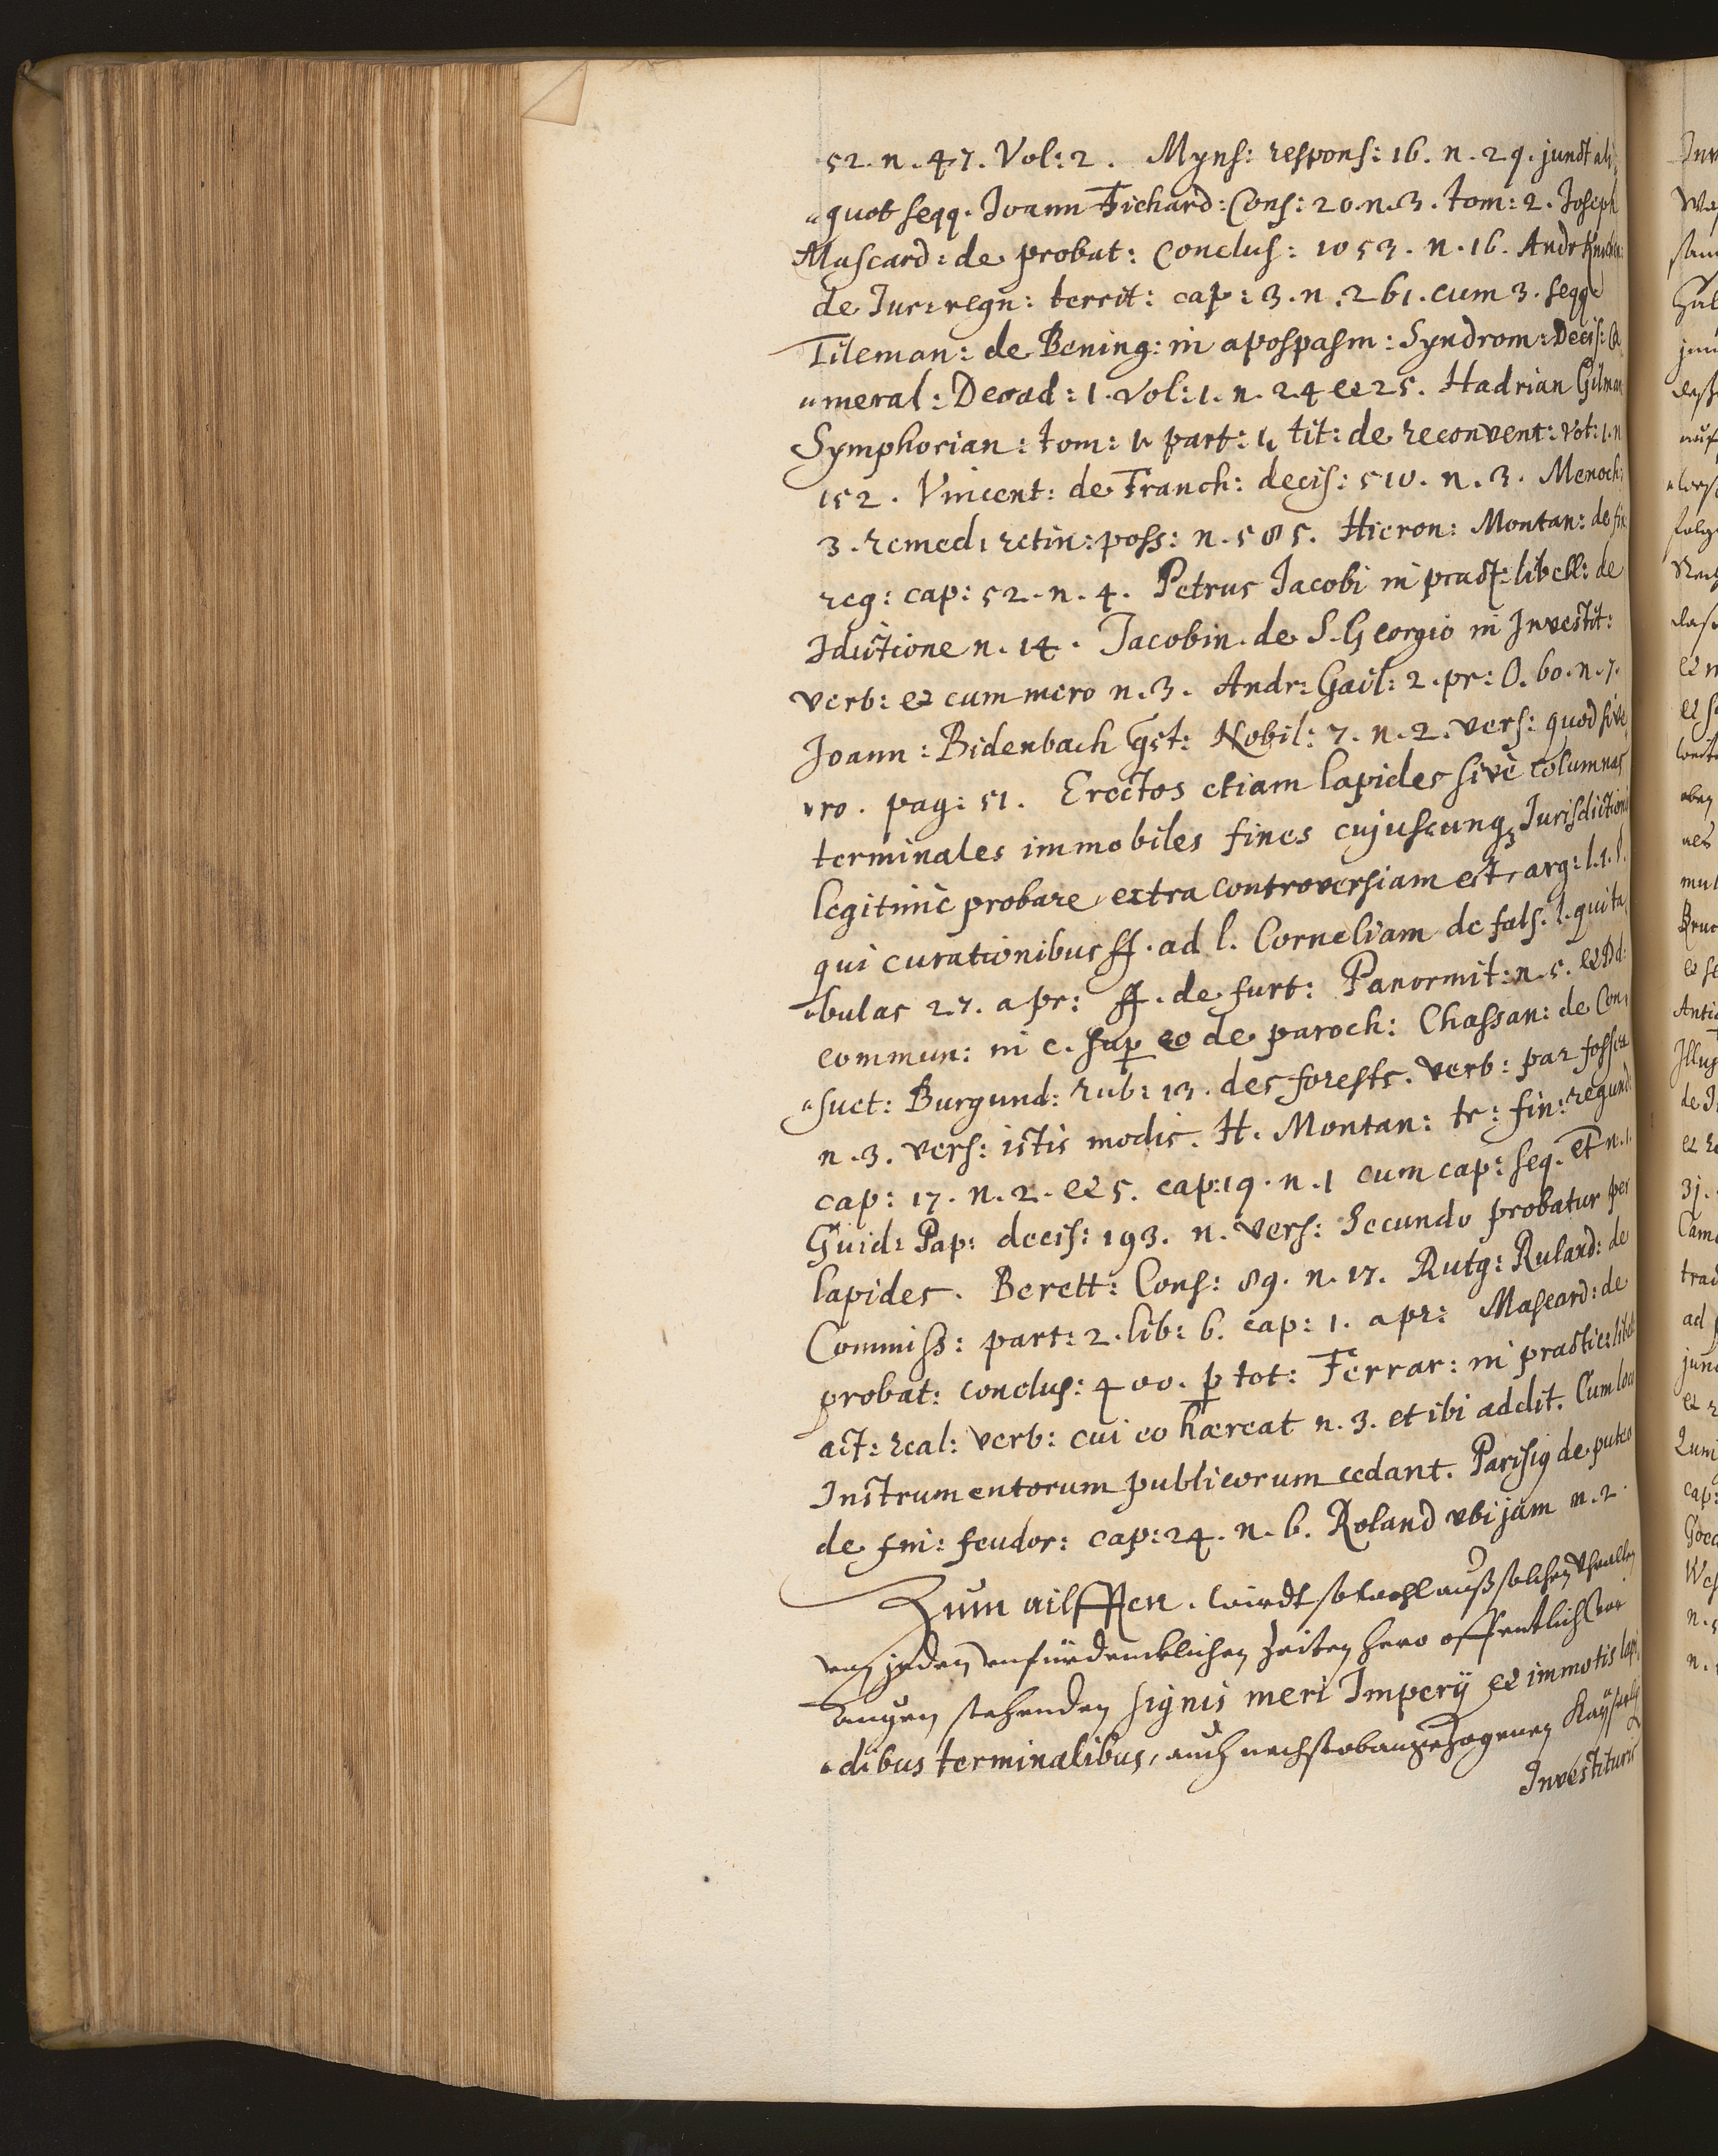 52. n. 47. Vol: 2. Mynſ: reſponſ: 16. n. 29. junct ali
"quot ſeqq. Joann Fichard: Conſ: 20. n. 3. tom: 2. Joſeph
Maſcard: de probat: Concluſ: 1053. n. 16. Andr
de Jur: regn: territ: cap: 3. n. 261. cum 3. ſeqq
Tileman: de Bening: in apoſpaſm: Syndrom: Deciſ: Ca
"meral: Decad: 1. Vol: 1. n. 24 et 25. Hadrian Gilman
Symphorian: tom: 1. part: 1. tit: de reconvent: Vot: 1. n
152. Vincent: de Franch: deciſ: 510. n. 3. Menoch:
3. remed: retin: poſſ: n. 585. Hieron: Montan: de fin:
reg: cap: 52. n. 4. Petrus Jacobi in pract: libell: de
Jdictione n. 14. Jacobin. de S. Georgio in Jnveſtit:
verb: et cum mero n. 3. Andr: Gail: 2. pr: O. 60. n. 7.
Joann: Bidenbach Qſt: Nobil: 7. n. 2. verſ: quod ſive
vro. pag: 51. Erectos etiam lapides ſivè columnas
terminales immobiles fines cujuſcunq; Juriſdictionis
legitimè probare, extra controverſiam eſt, arg: l. 1. §.
qui curationibus ff. ad l. Corneliam de falſ. l. qui ta
"bulas 27. a pr: ff. de furt: Panormit: n. 5. et Dd:
commun: in c. ſup eo de paroch: Chaſſan: de Con
"ſuet: Burgund: rub: 13. des foreſts. verb: par foſſes
n. 3. verſ: iſtis modis. H. Montan: tr: fin: regund:
cap: 17. n. 2. et 5. cap: 19. n. 1 cum cap: ſeq. et n. 1.
Guid: Pap: deciſ: 193. n. verſ: Secundo probatur per
lapides. Berett: Conſ: 89. n. 17. Rutg: Ruland: de
Commiſſ: part: 2. lib: 6. cap: 1. a pr: Maſcard: de
probat: concluſ: 400. p tot: Ferrar: in practic: libel:
act: real: verb: cui co hæreat n. 3. et ibi addit. Cum loco
Jnſtrumentorum publicorum cedant. Pariſig de puteo
de fin: feudor: cap: 24. n. 6. Roland vbi jam n. 2.
Zum ailfften. wirdt ſo wohl auß ſolchen Vhralten
von unfürdencklichen Zeiten hero offentlich vor
Augen ſtehenden ſignis meri Imperÿ et immotis lapi
"dibus terminalibus, auch nechſtobangezogenen Kayſerlich
Jnveſtituris